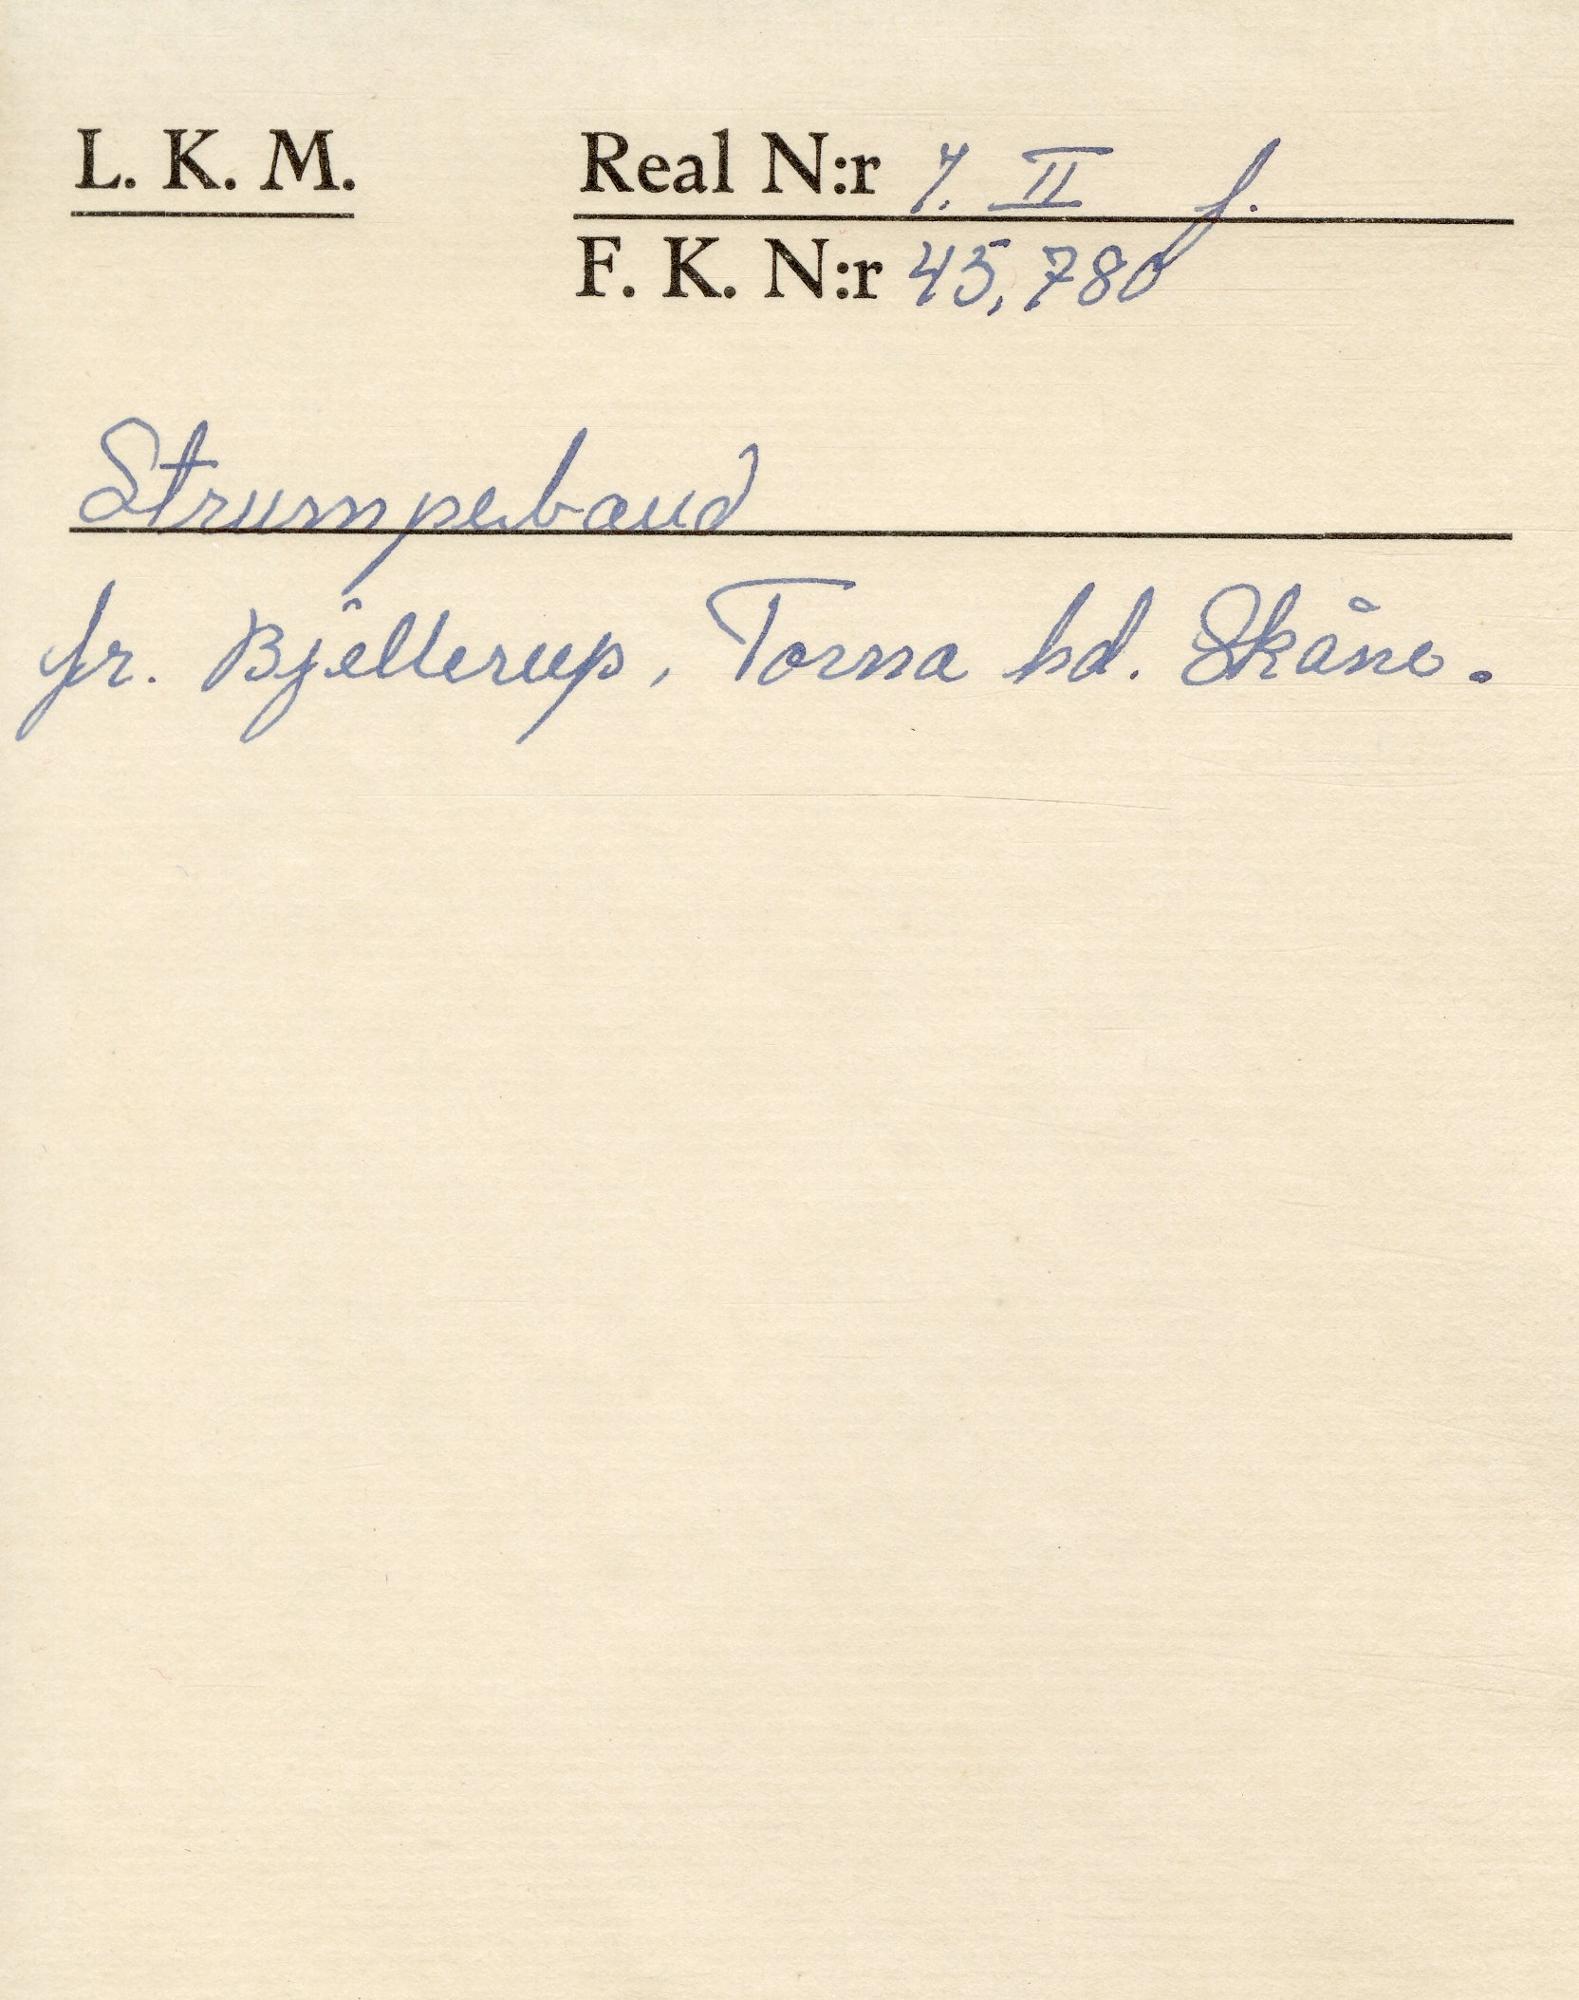 L. K. M.
Real N:r 7. II f.
F. K. N:r 45,780
Strumpeband
fr. Bjällerup, Torna hd. Skåne.